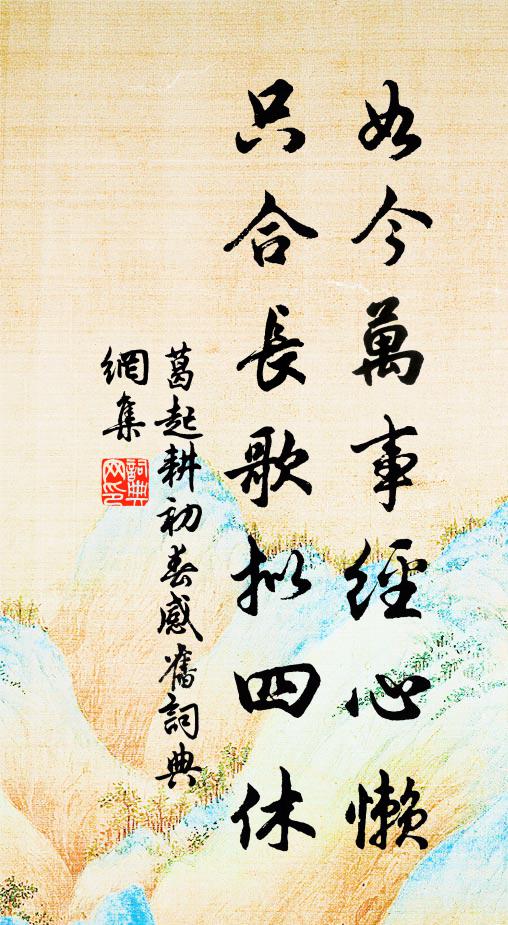 如今萬事經心懶
只合長歌擬四休
葛起耕初春感舊詞典
網集
詞典網印